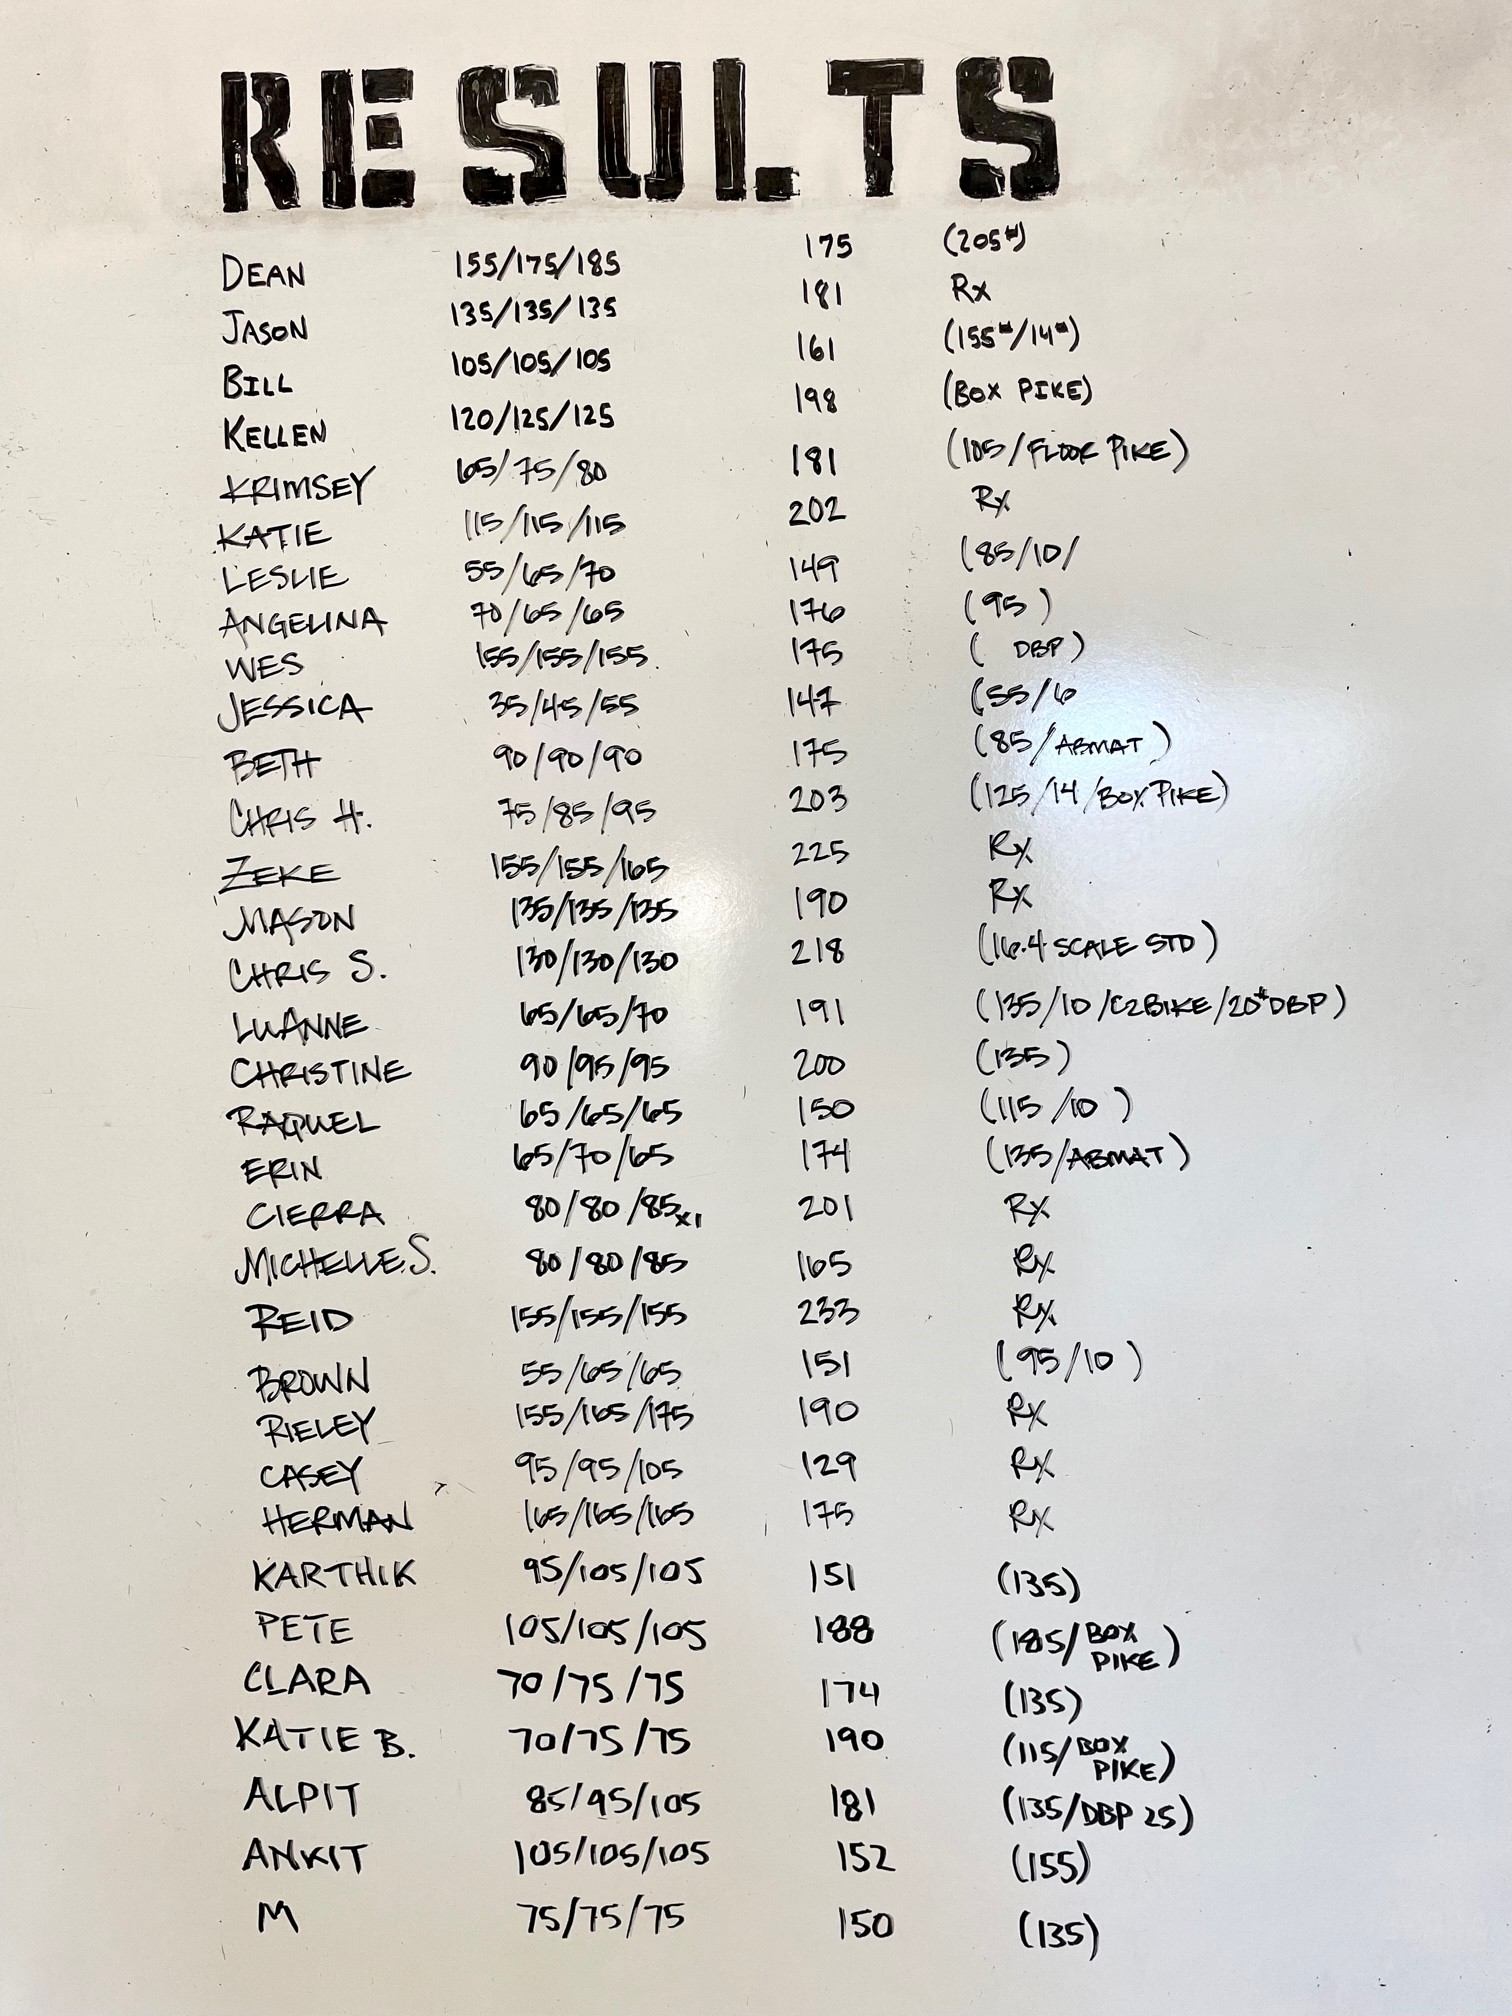 RESULTS
DEAN 155/175/185 175 (205#)
JASON 135/135/135 181 Rx
BILL 105/105/105 161 (155#/14#)
KELLEN 120/125/125 198 (BOX PIKE)
KRIMSEY 65/75/80 181 (105/FLOOR PIKE)
KATIE 115/115/115 202 Rx
LESLIE 55/65/70 149 (85/10/
ANGELINA 70/65/65 176 (95)
WES 155/155/155 175 ( DBP)
JESSICA 35/45/55 147 (55/6
BETH 90/90/90 175 (85/ABMAT)
CHRIS H. 75/85/95 203 (125/14/BOX PIKE)
ZEKE 155/155/165 225 Rx
MASON 135/135/135 190 Rx
CHRIS S. 130/130/130 218 (16.4 SCALE STD)
LUANNE 65/65/70 191 (135/10/C2BIKE/20#DBP)
CHRISTINE 90/95/95 200 (135)
RAQUEL 65/65/65 150 (115/10)
ERIN 65/70/65 174 (135/ABMAT)
CIERRA 80/80/85x1 201 Rx
MICHELLE S. 80/80/85 165 Rx
REID 155/155/155 233 Rx
BROWN 55/65/65 151 (95/10)
RIELEY 155/165/175 190 Rx
CASEY 95/95/105 129 Rx
HERMAN 165/165/165 175 Rx
KARTHIK 95/105/105 151 (135)
PETE 105/105/105 188 (185/BOX PIKE)
CLARA 70/75/75 174 (135)
KATIE B. 70/75/75 190 (115/BOX PIKE)
ALPIT 85/95/105 181 (135/DBP 25)
ANKIT 105/105/105 152 (155)
M 75/75/75 150 (135)